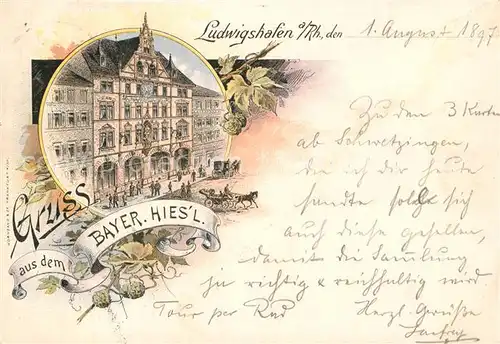 Ludwigshafen a/Rh, den 1. August 1897
Zu den 3 Karten
ab Schwetzingen,
die ich dir heute
sandte solle sich
auch diese gesellen,
damit die Sammlung
ja richtig & reichhaltig wird
Tour per Rad Herzl. Grüße
Gruss
aus dem
BAYER. HIES'L.